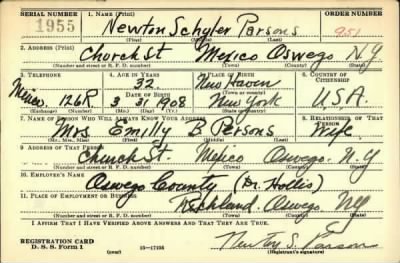 SERIAL NUMBER 1. NAME (Print) ORDER NUMBER
1955 Newton Schyler Parsons 951
2. ADDRESS (Print)
Church St Mexico Oswego NY
(Number and street or R. F. D. number) (Town) (County) (State)
3. TELEPHONE 4. AGE IN YEARS 5. PLACE OF BIRTH 6. COUNTRY OF CITIZENSHIP
32 New Haven
DATE OF BIRTH (Town or county)
Mexico 126R 3 31 1908 New York U.S.A.
(Exchange) (Number) (Mo.) (Day) (Yr.) (State or country)
7. NAME OF PERSON WHO WILL ALWAYS KNOW YOUR ADDRESS 8. RELATIONSHIP OF THAT PERSON
Mrs. Emilly B Persons Wife
(Mr., Mrs., Miss) (First) (Middle) (Last)
9. ADDRESS OF THAT PERSON
Church St. Mexico Oswego N.Y
(Number and street or R. F. D. number) (Town) (County) (State)
10. EMPLOYER'S NAME
Oswego County (Dr. Hollis)
11. PLACE OF EMPLOYMENT OR BUSINESS
Richland Oswego NY
(Number and street or R. F. D. number) (Town) (County) (State)
I AFFIRM THAT I HAVE VERIFIED ABOVE ANSWERS AND THAT THEY ARE TRUE.
REGISTRATION CARD
D. S. S. Form 1 (over) Newton S. Parsons
(Registrant's signature)